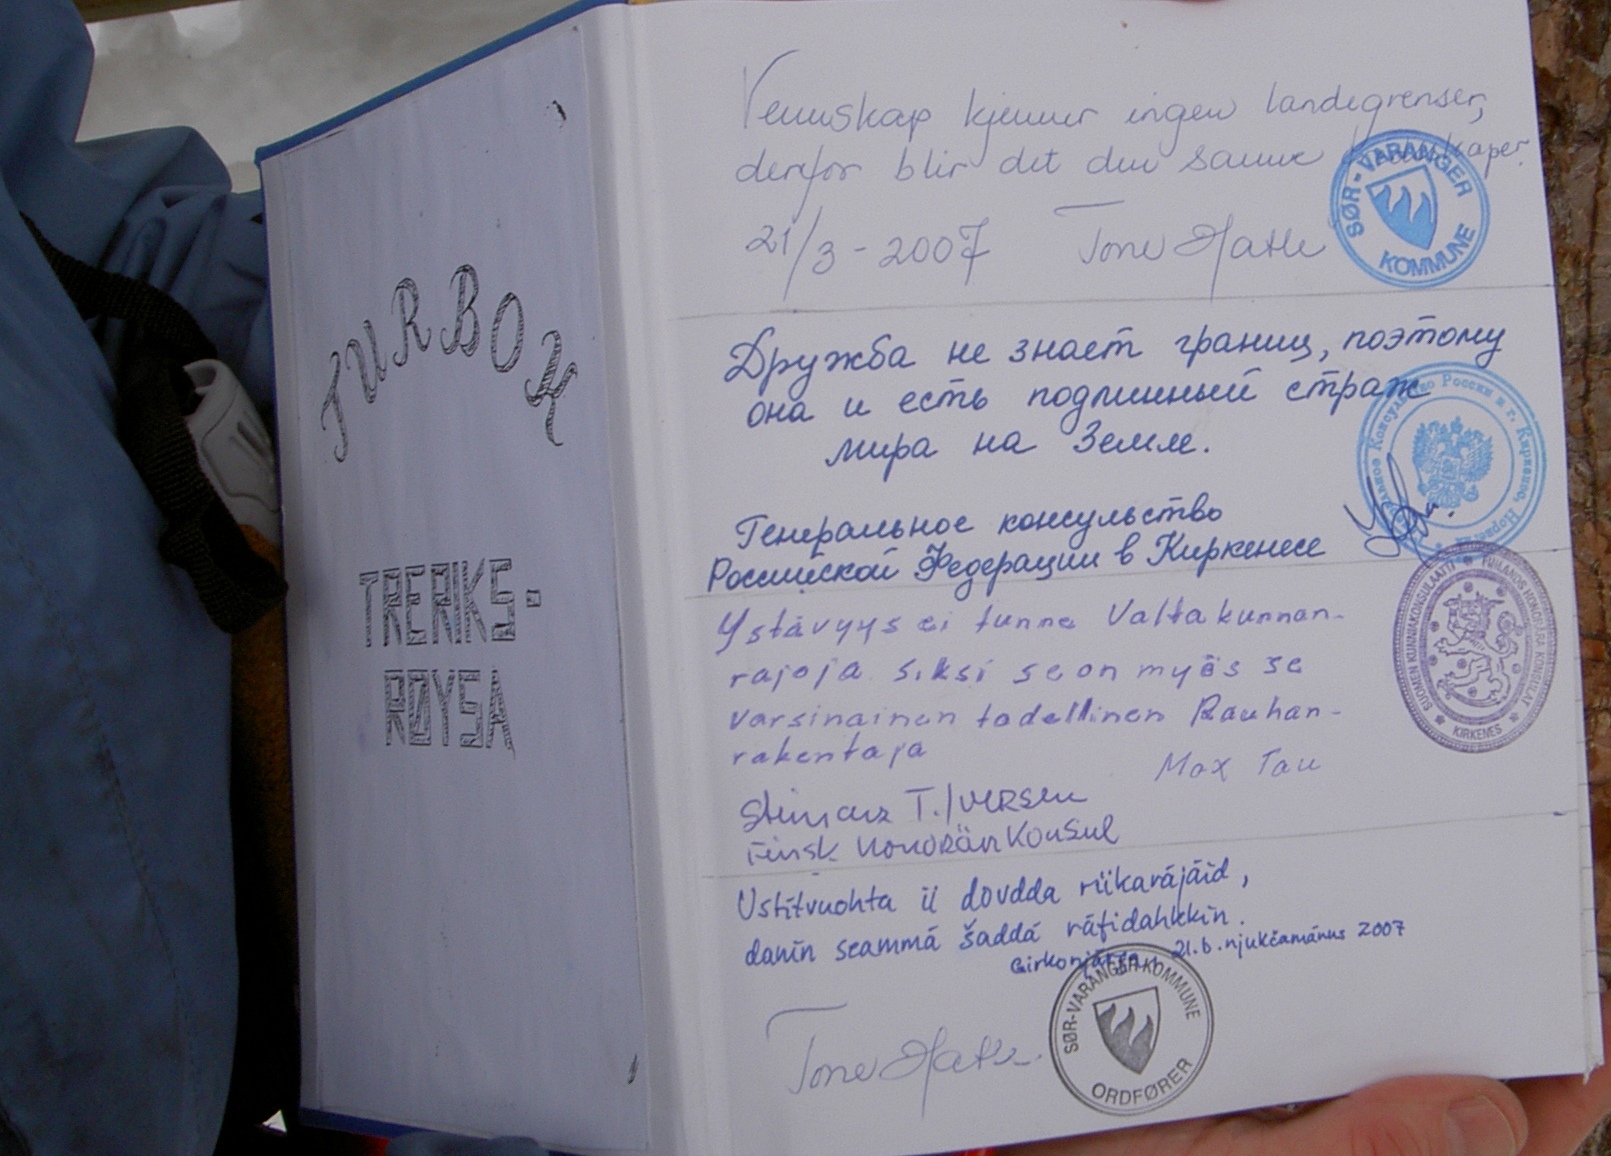 TURBOK
TRERIKS-
RØYSA
Vennskap kjenner ingen landegrenser,
derfor blir det den sanne
21/3-2007 Tone Hatle
SØR-VARANGER
KOMMUNE
Дружба не знает границ, поэтому
она и есть подлинный страж
мира на Земле.
Генеральное консульство
Российской Федерации в Киркенесе
Консульство России в г. Киркенес,
Ystävyys ei tunne Valtakunnan-
rajoja siksi se on myös se
varsinainen todellinen Rauhan-
rakentaja
Max Tau
SUOMEN KUNNIAKONSULAATTI
FINLANDS HONORÄRA KONSULAT
KIRKENES
T. Iversen
Finsk Honorärkonsul
Ustitvuohta ii dovdda riikarájáid,
danin seammá šaddá ráfidahkkin.
Girkonjárga, 21.b. njukčamánus 2007
Tone Hatle
SØR-VARANGER KOMMUNE
ORDFØRER